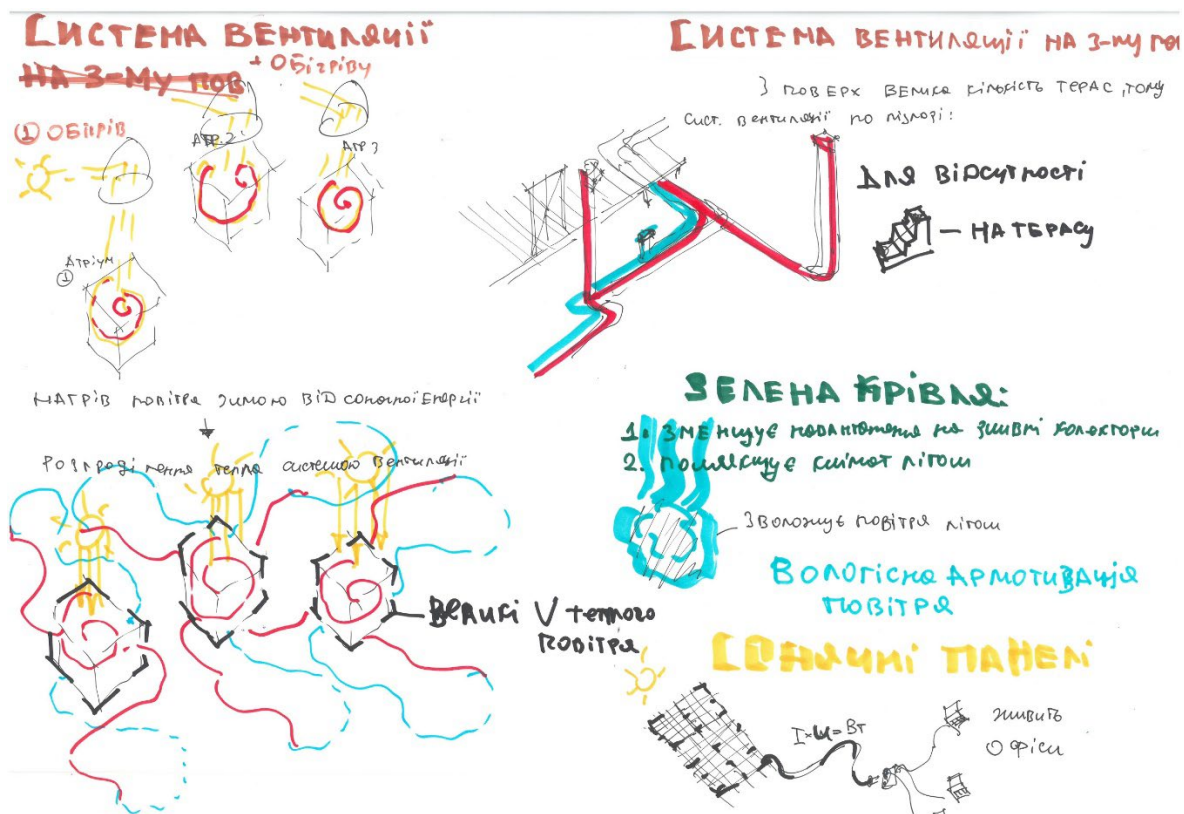 СИСТЕМА ВЕНТИЛЯЦІЇ
НА 3-МУ ПОВ
+ ОБІГРІВУ
① ОБІГРІВ
АТР. 2
АТР 3
АТРІУМ
①
НАГРІВ ПОВІТРЯ ЗИМОЮ ВІД СОНЯЧНОЇ ЕНЕРГІЇ
РОЗПРОДІЛЕННЯ ТЕПЛА СИСТЕМОЮ ВЕНТИЛЯЦІЇ
ВЕЛИКІ V ТЕПЛОГО
ПОВІТРЯ
СИСТЕМА ВЕНТИЛЯЦІЇ НА 3-МУ ПО
3 ПОВЕРХ ВЕЛИКА КІЛЬКІСТЬ ТЕРАС, ТОМУ
СИСТ. ВЕНТИЛЯЦІЇ ПО ПІДЛОЗІ:
ДЛЯ ВІДСУТНОСТІ
— НА ТЕРАСУ
ЗЕЛЕНА КРІВЛЯ:
1. ЗМЕНШУЄ НАВАНТАЖЕННЯ НА ЗЛИВНІ КОЛЕКТОРИ
2. ПОМ'ЯКШУЄ КЛІМАТ ЛІТОМ
ЗВОЛОЖУЄ ПОВІТРЯ ЛІТОМ
ВОЛОГІСНА АРМОТИЗАЦІЯ
ПОВІТРЯ
СОНЯЧНІ ПАНЕЛІ
I×U=ВТ
ЖИВИТЬ
ОФІСИ